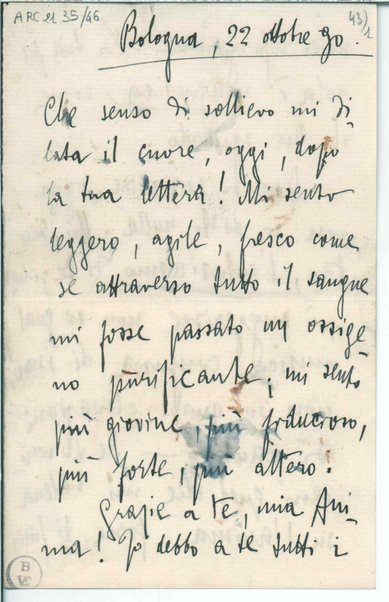 ARC 21 35/46
43)/1
Bologna, 22 ottobre 90.
Che senso di sollievo mi di-
lata il cuore, oggi, dopo
la tua lettera! Mi sento
leggero, agile, fresco come
se attraverso tutto il sangue
mi fosse passato un ossige-
no purificante; mi sento
più giovine, più poderoso,
più forte, più altero.
Grazie a te, mia Ani-
ma! Io debbo a te tutti i